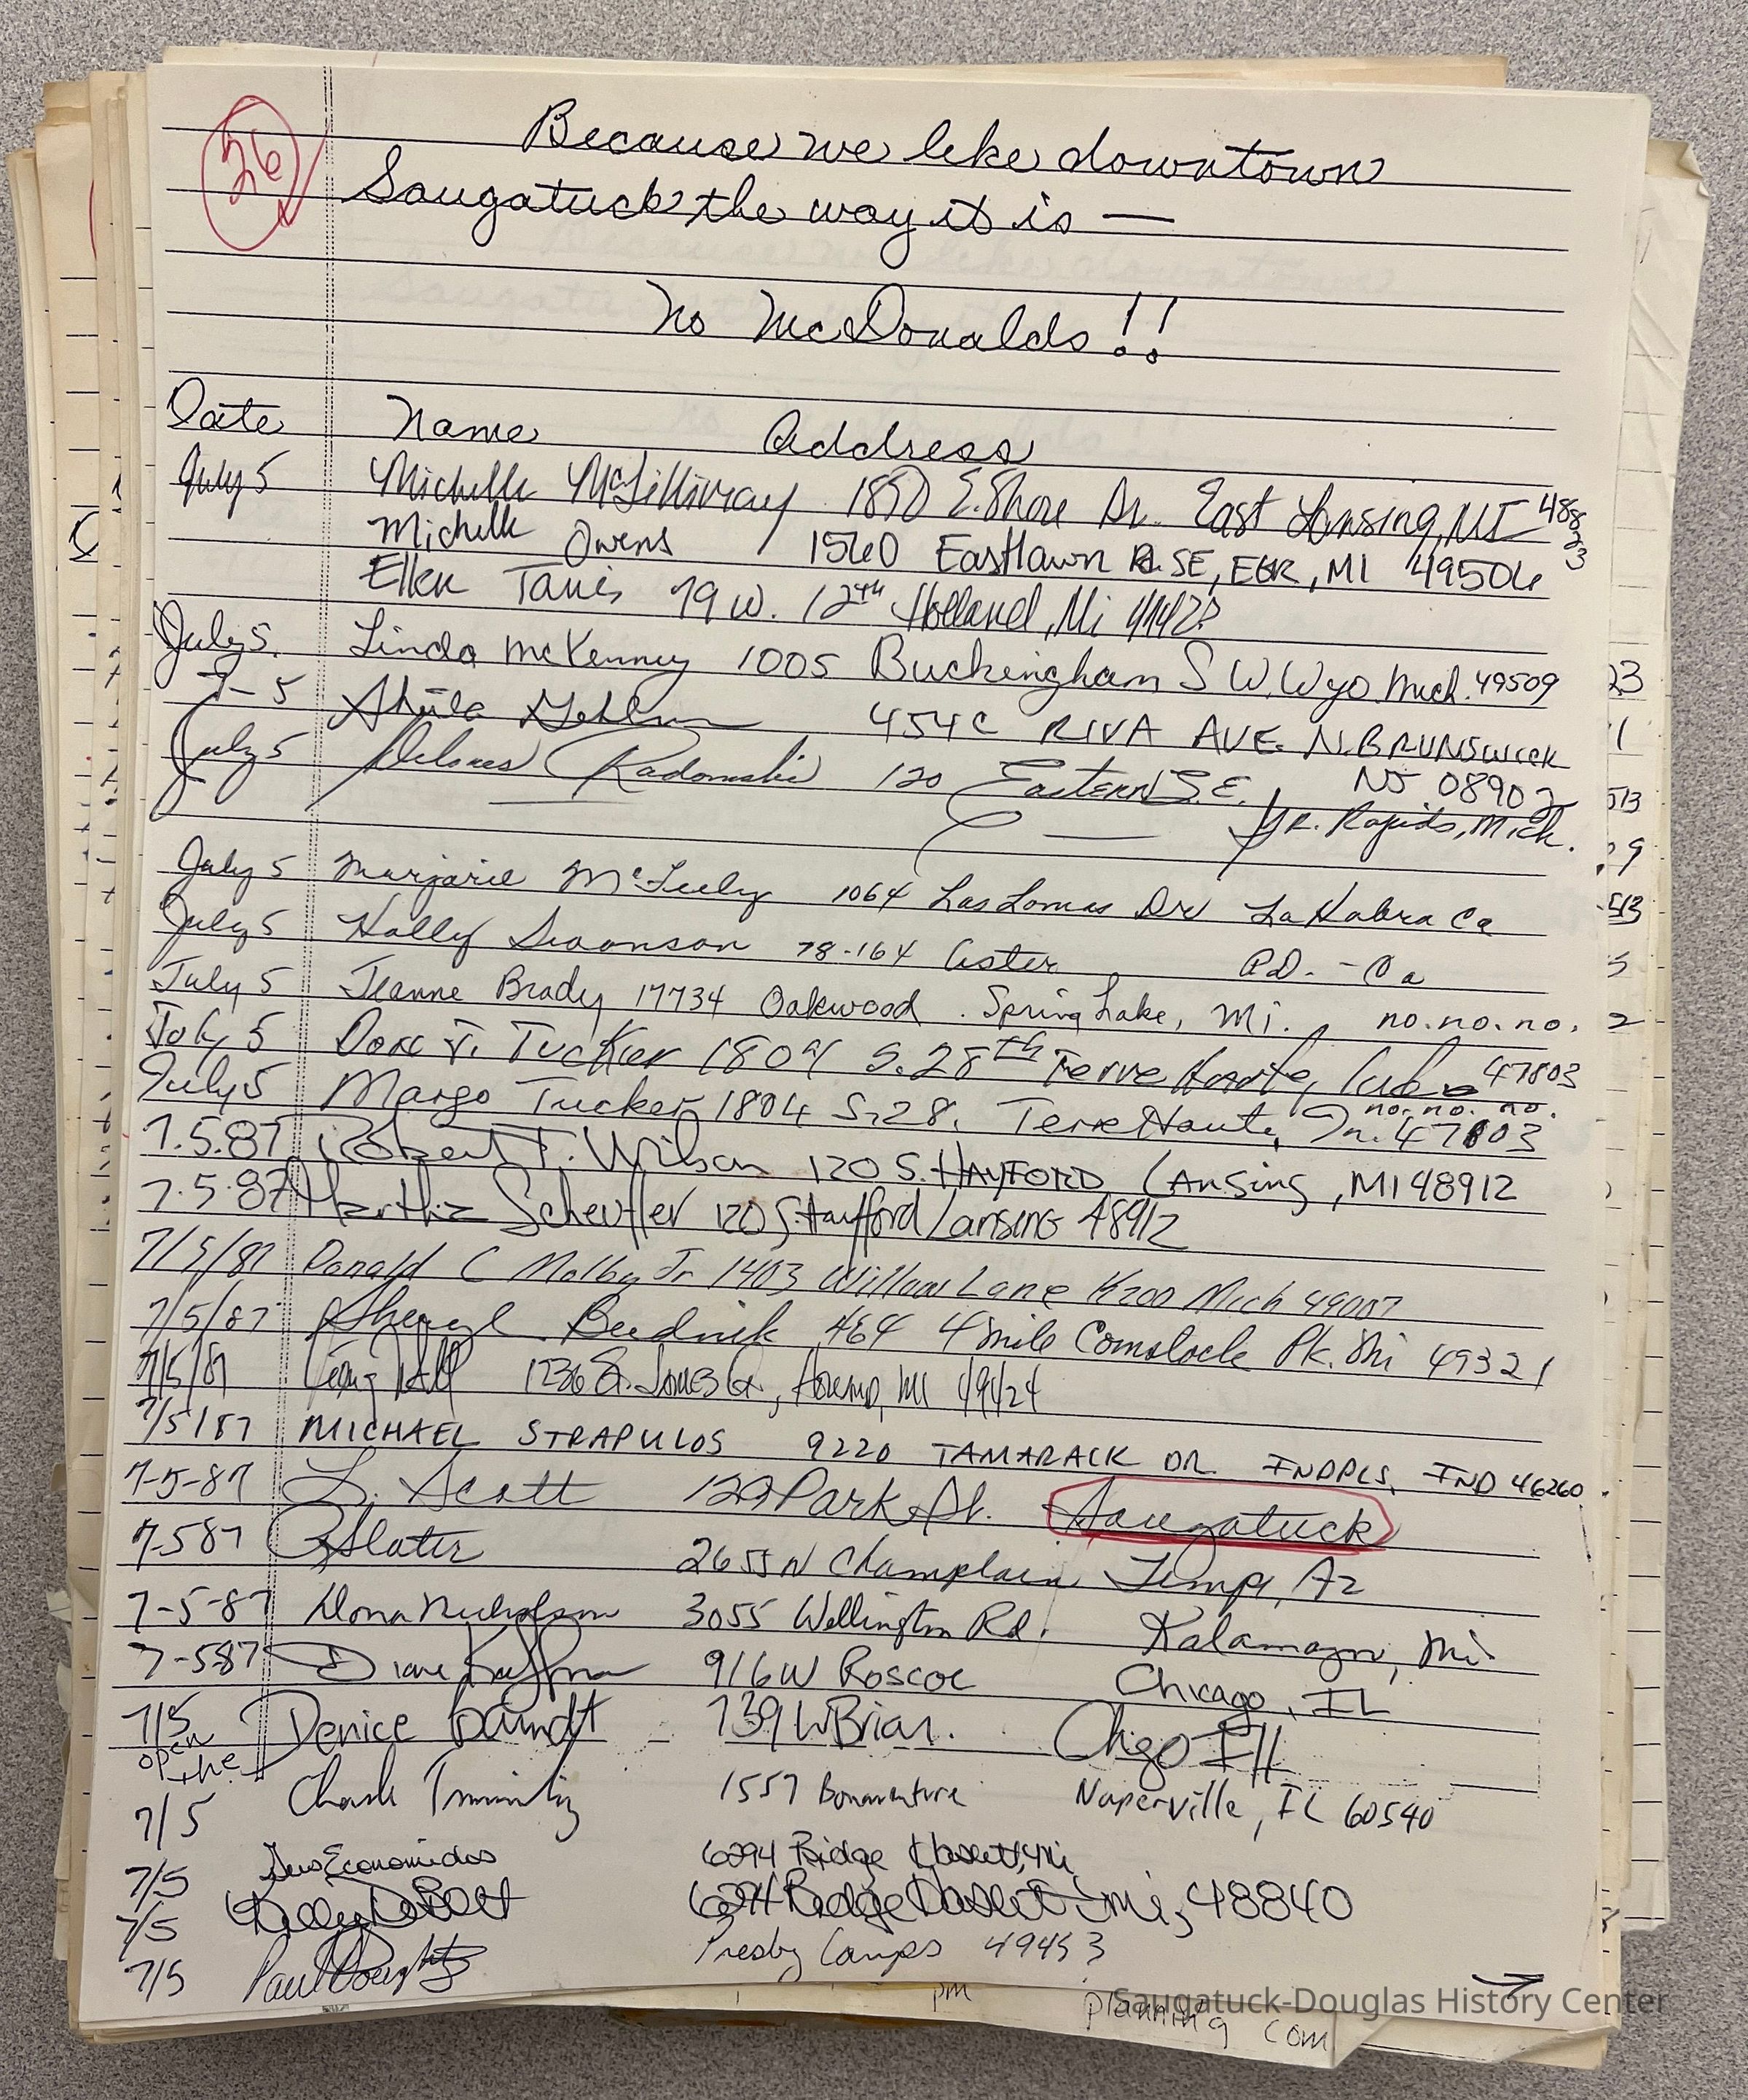 26
Because we like downtown
Saugatuck the way it is —
No McDonalds!!
Date Name Address
July 5 Michelle McGillivray 1890 E. Shore Dr. East Lansing, MI 48823
Michelle Owens 1560 Eastlawn Rd. SE, EGR, MI 49506
Ellen Tanis 79 W. 12th Holland, Mi
July 5. Linda McKenney 1005 Buckingham S W. Wyo. Mich. 49509
7-5 Sheila 454C RIVA AVE. N. BRUNSWICK
NJ 08902
July 5 Delores Radomski 120 Eastern S.E. Gr. Rapids, Mich.
July 5 Marjorie 1064 Las Lomas Dr La Habra Ca
July 5 Holly Swanson 78-164 Aster P.D. - Ca
July 5 Jeanne Brady 17734 Oakwood. Spring Lake, Mi., no. no. no.
July 5 Tucker 1809 S. 28th Terre Haute, 47803
no. no. no.
July 5 Margo Tucker 1804 S. 28. Terre Haute, In. 47803
7.5.87 Robert T. Wilson 120 S. HAYFORD Lansing, MI 48912
7.5.87 Martha Scheutler 120 S. Hayford Lansing 48912
7/5/87 Donald C Molby Jr 1403 Willow Lane Kzoo Mich 49007
7/5/87 Sheryl Budnik 464 4 mile Comstock Pk. Mi 49321
7/5/87 1236 Holland, MI 49424
7/5/87 MICHAEL STRAPULOS 9220 TAMARACK DR. INDPLS, IND 46260.
7-5-87 L. Scott Park St. Saugatuck
7-587 Slater 2655 N Champlain Tempe, Az
7-5-87 Dona Nicholson 3055 Wellington Rd. Kalamazoo, Mi
7-587 Diane Kaffman 916 W Roscoe Chicago, IL
7/5 Denice 739 W Briar. Chgo Ill
open the
7/5 1557 Bonaventure Naperville, IL 60540
7/5 Economidos 6294 Ridge Haslett, Mi
7/5 Kelly 6294 Ridge Haslett Mi, 48840
7/5 Paul Presby Camps 49453
pm planning com
Saugatuck-Douglas History Center